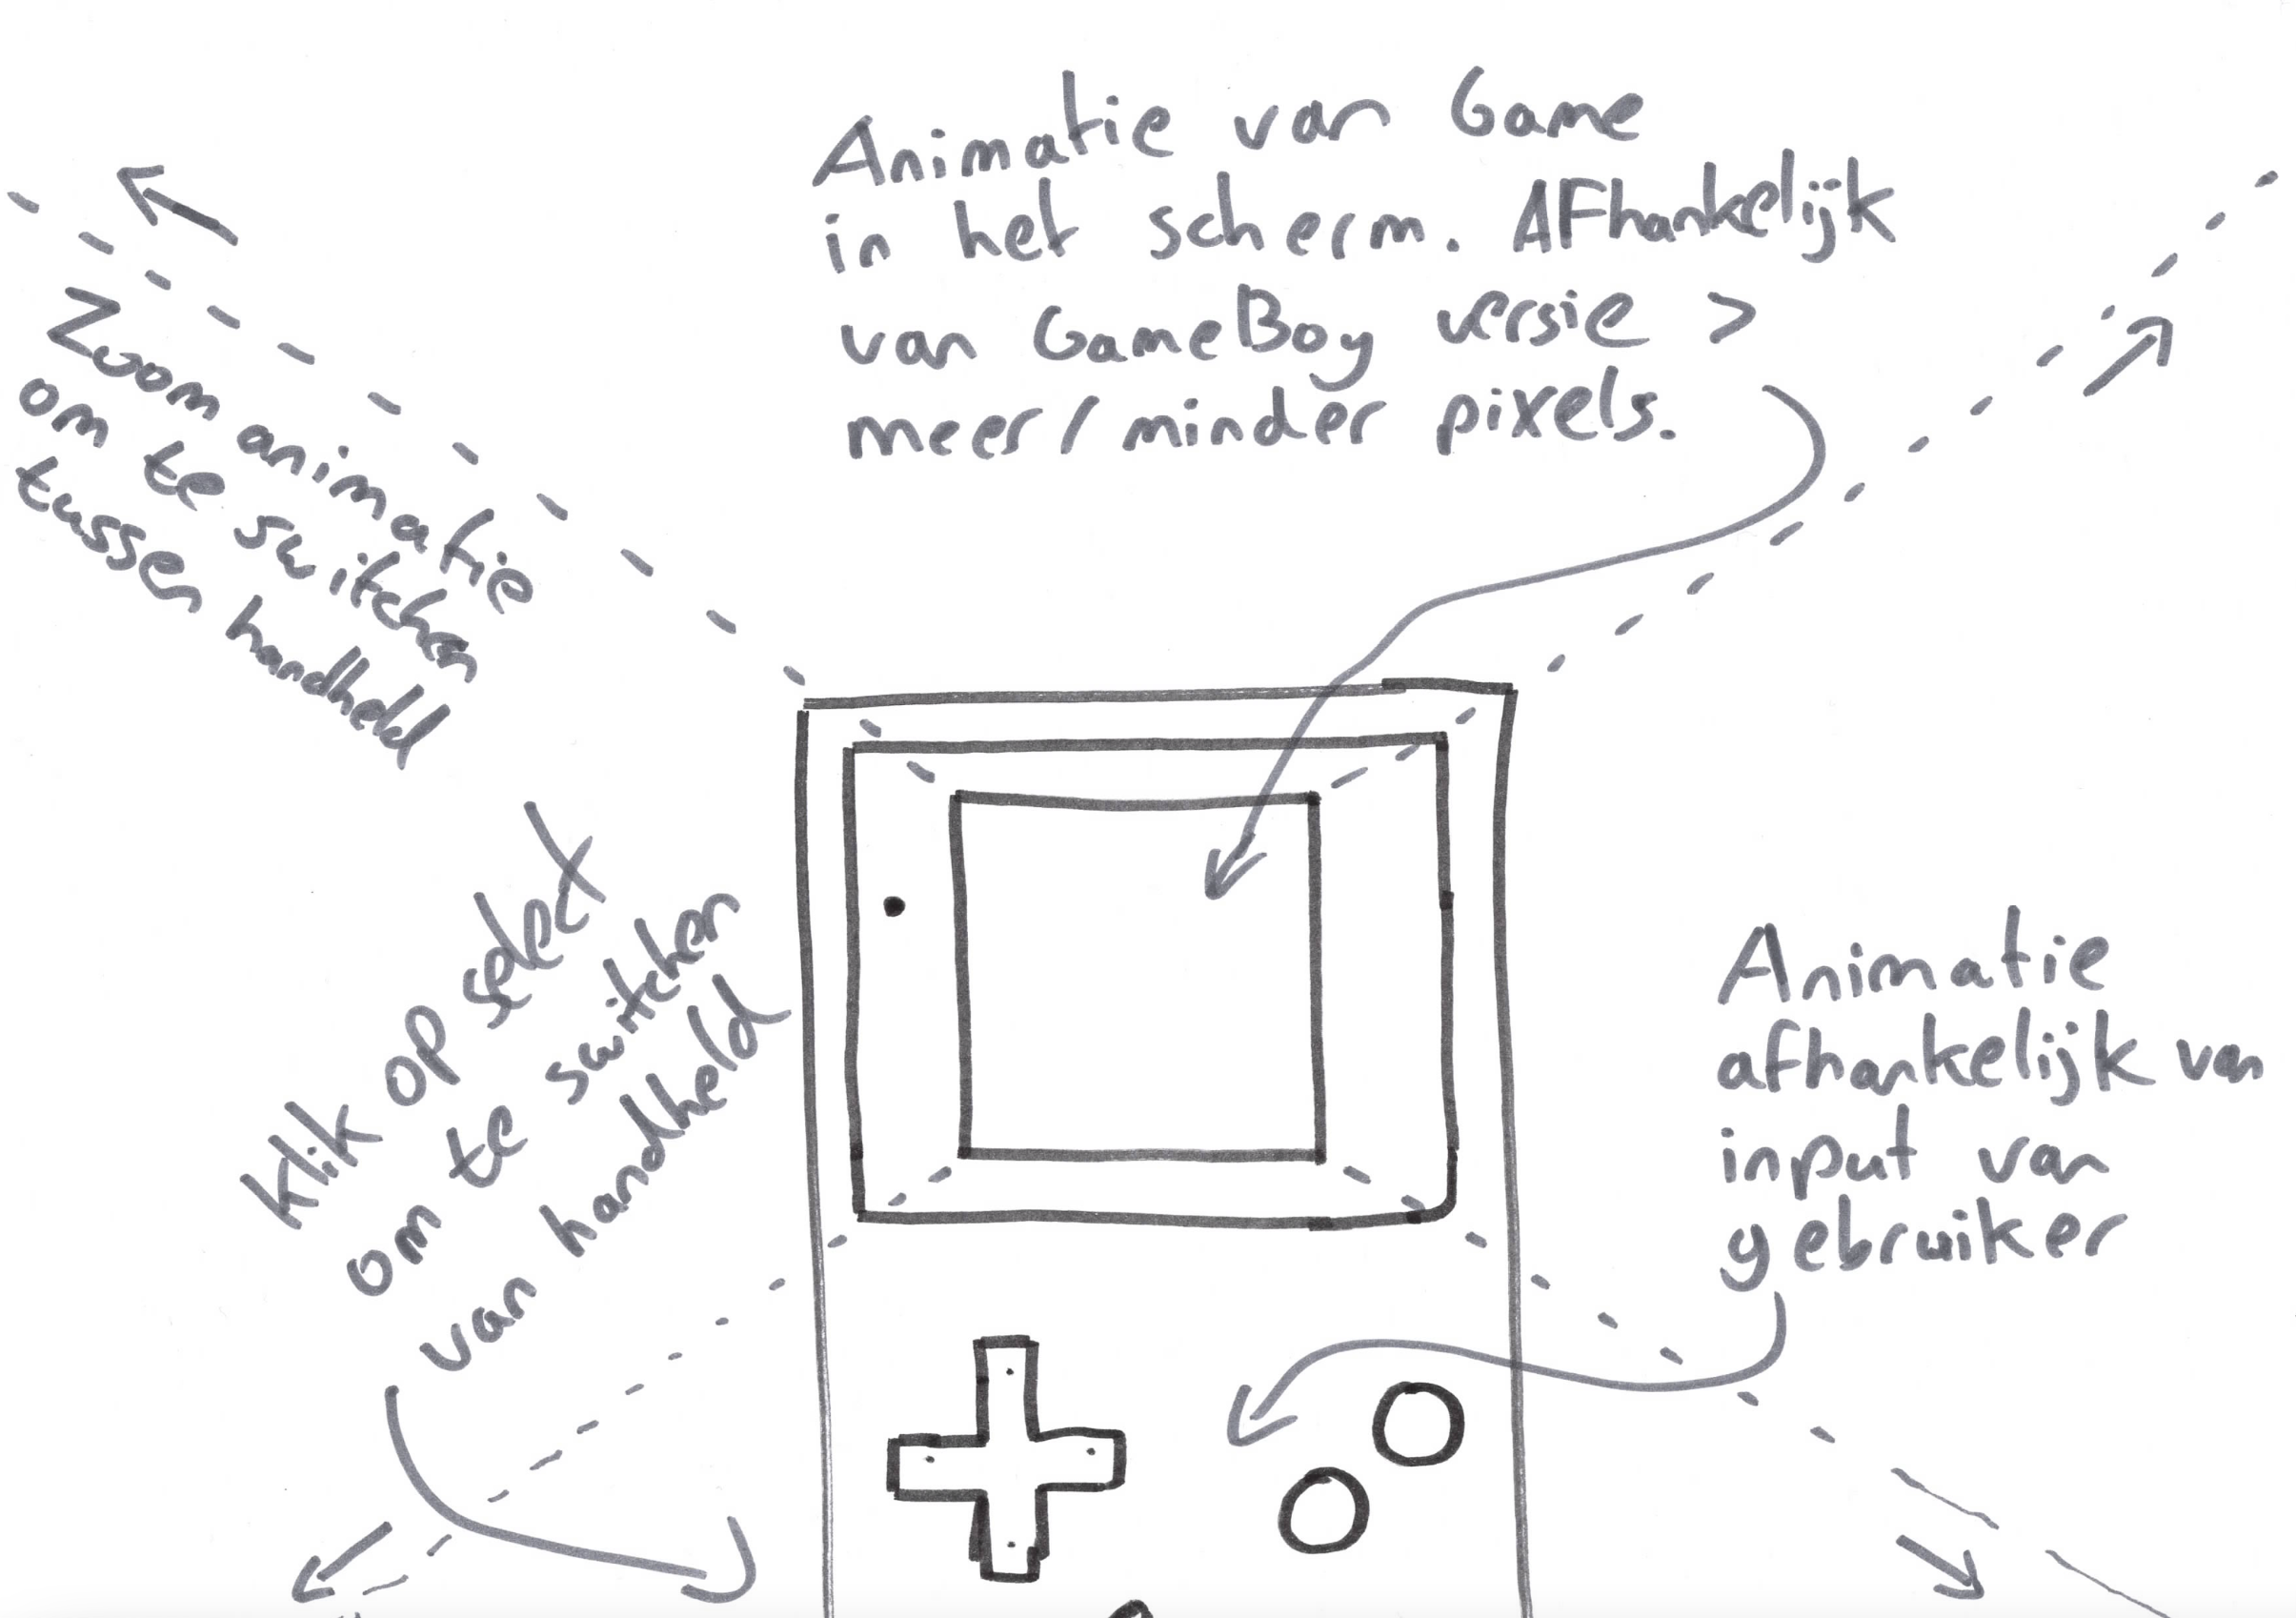 Animatie van Game
in het scherm. AFhankelijk
van GameBoy versie >
meer/minder pixels.
Zoom animatie
om te switchen
tussen handheld
Klik op select
om te switchen
van handheld
Animatie
afhankelijk van
input van
gebruiker